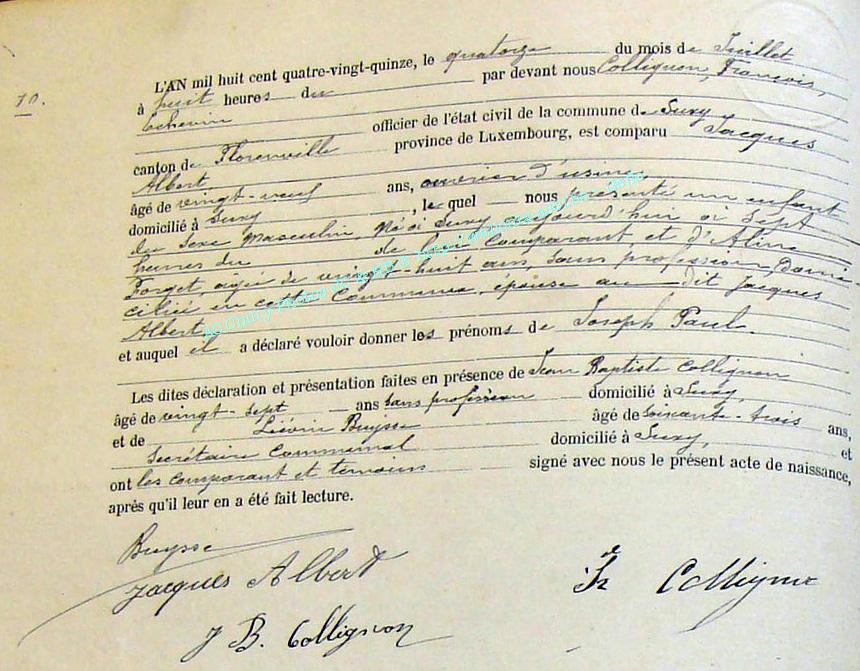 10.
L'AN mil huit cent quatre-vingt-quinze, le quatorze du mois de Juillet
à huit heures du par devant nous Collignon, François,
Echevin officier de l'état civil de la commune de Suxy
canton de Florenville province de Luxembourg, est comparu Jacques
Albert
âgé de vingt-neuf ans, ouvrier d'usine,
domicilié à Suxy, le quel nous présenté un enfant
du sexe Masculin, Né à Suxy aujourd'hui à sept
heures du de lui Comparant, et d'Aline
Forget, agée de vingt-huit ans, sans profession, domi
ciliée en cette Commune, épouse au dit Jacques
Albert,
et auquel il a déclaré vouloir donner les prénoms de Joseph Paul.
Les dites déclaration et présentation faites en présence de Jean Baptiste Collignon
âgé de vingt-sept ans sans profession domicilié à Suxy,
et de Liévin Buysse âgé de soixante-trois ans,
Secrétaire Communal domicilié à Suxy, et
ont les comparant et temoins signé avec nous le présent acte de naissance,
après qu'il leur en a été fait lecture.
Buysse
Jacques Albert
Collignon
J B. Collignon